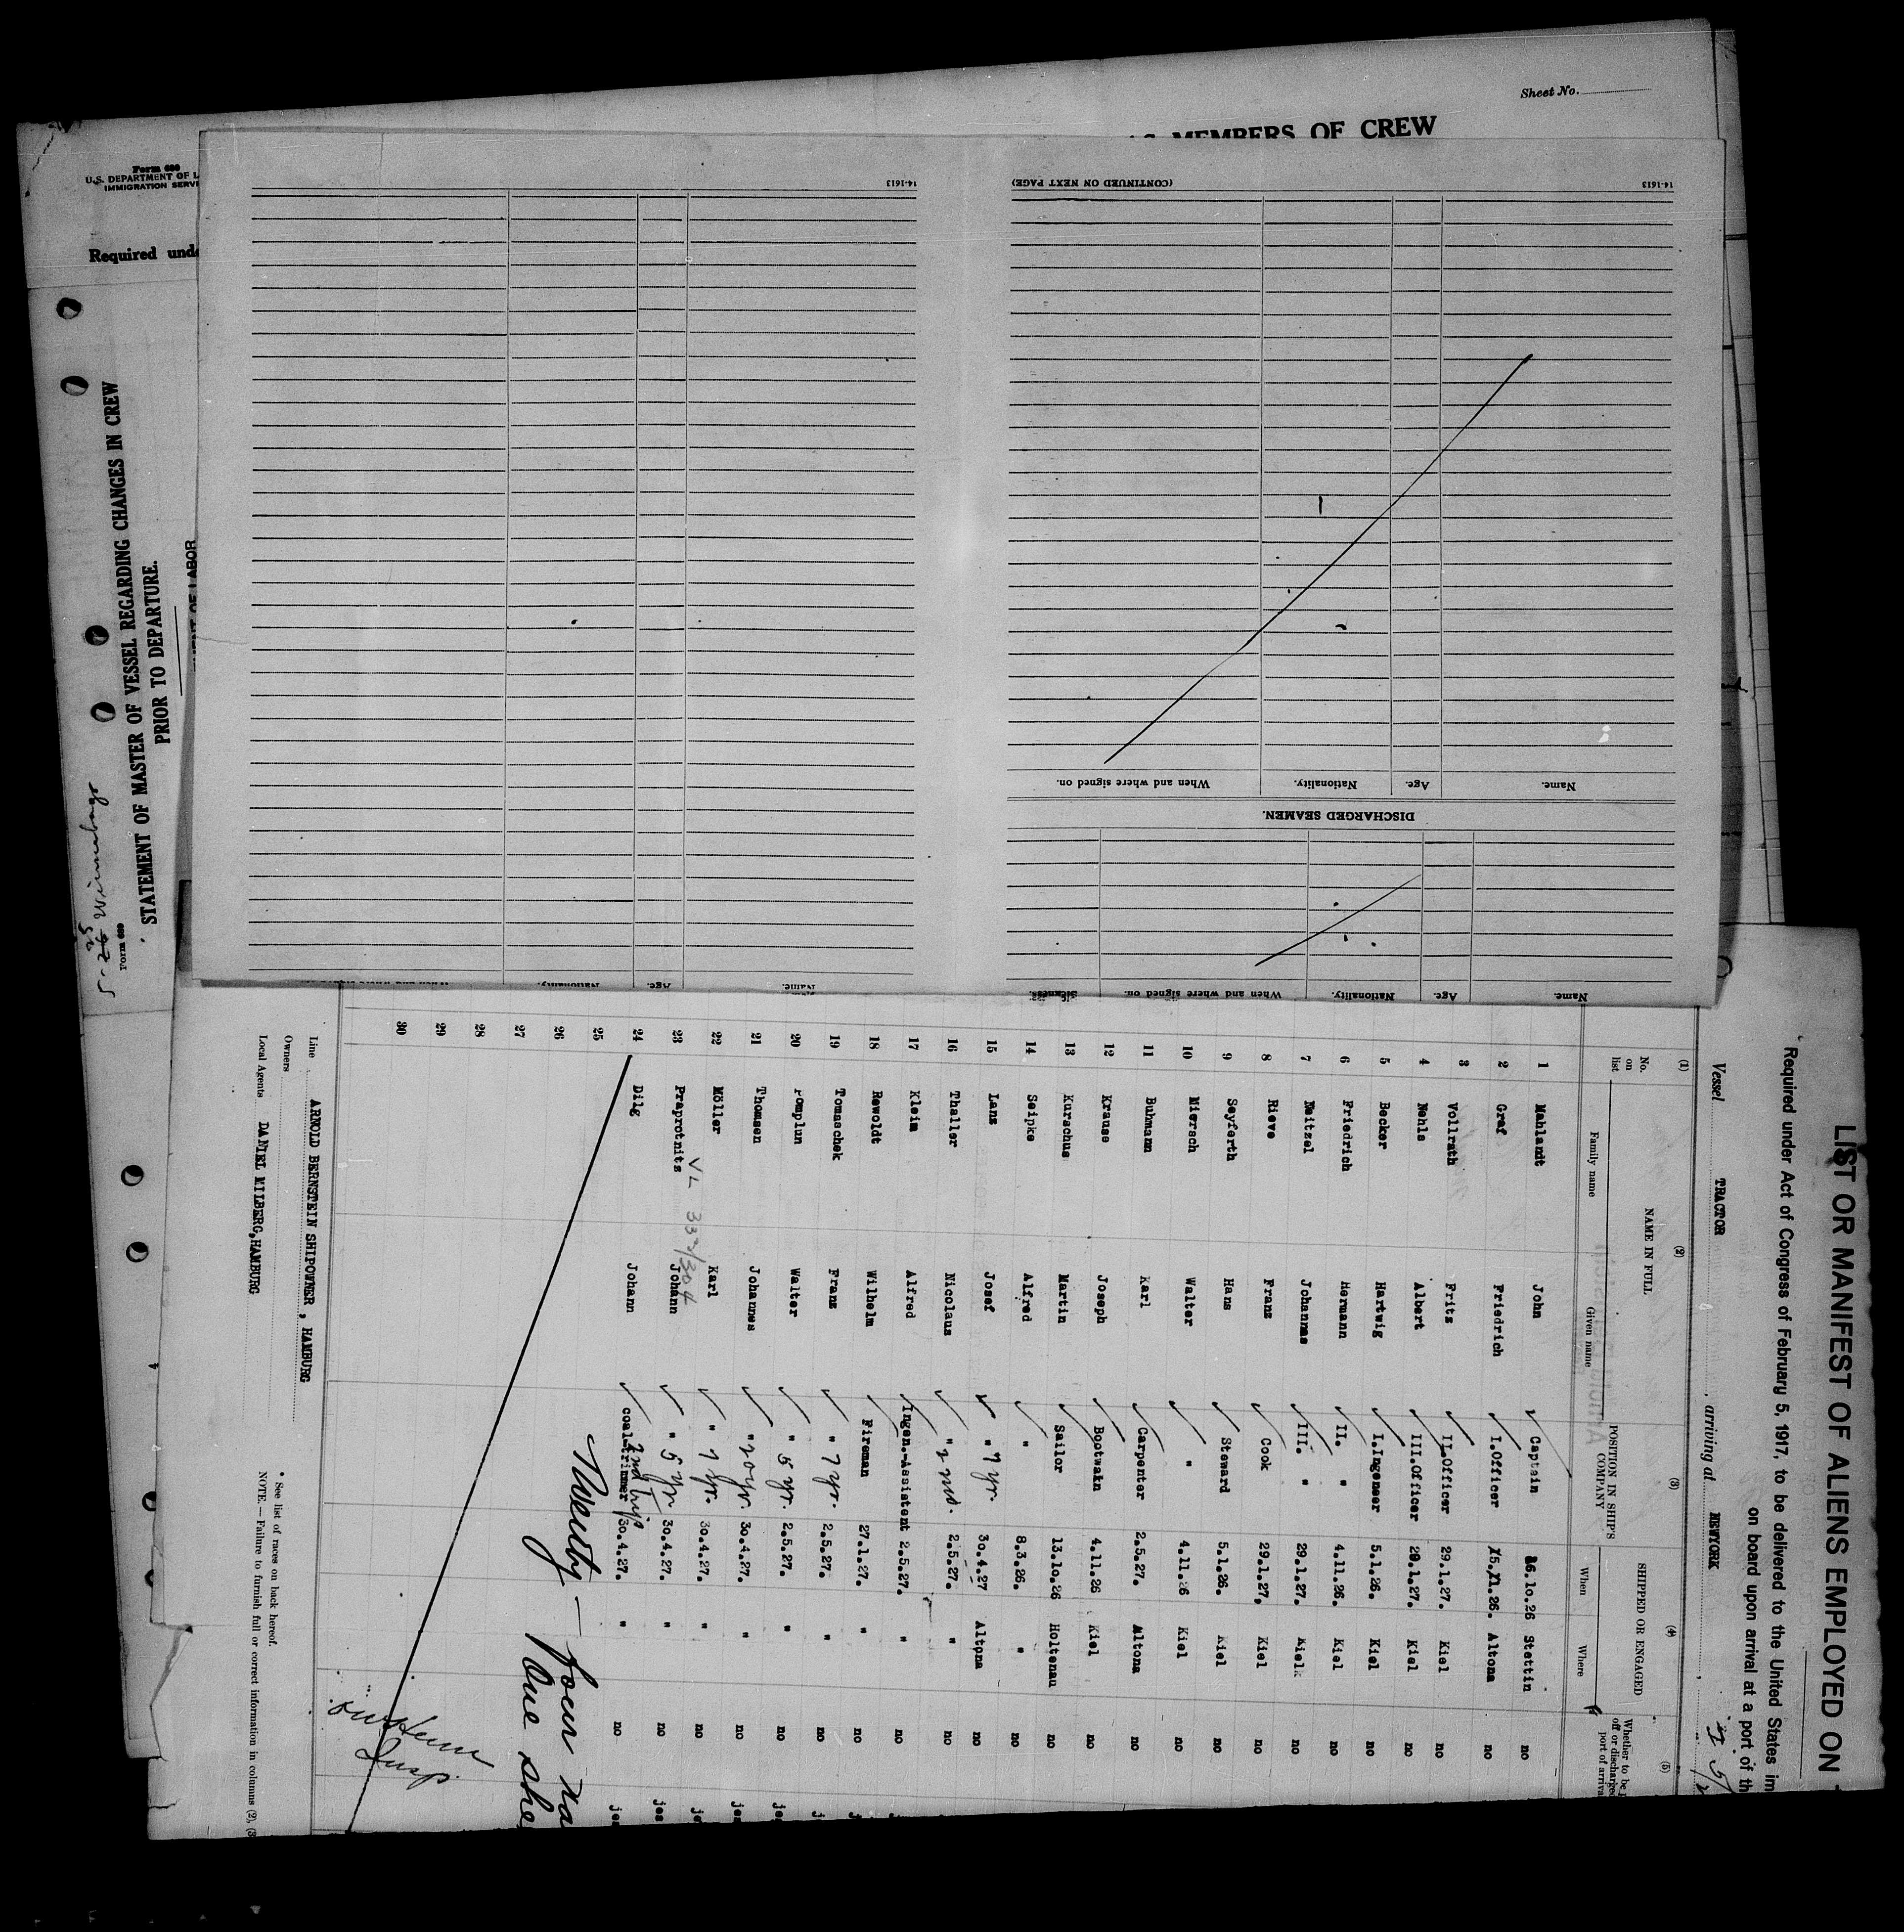 Sheet No.
MEMBERS OF CREW
Form 689
U.S. DEPARTMENT OF L
IMMIGRATION SERVI
Required unde
STATEMENT OF MASTER OF VESSEL REGARDING CHANGES IN CREW
PRIOR TO DEPARTURE.
Form 689
OF LABOR
14-1613
(CONTINUED ON NEXT PAGE)
14-1613
Name. Age. Nationality. When and where signed on.
DISCHARGED SEAMEN.
Name. Age. Nationality. When and where signed on. Sickness.
Name. Age. Nationality. When and where signed on.
LIST OR MANIFEST OF ALIENS EMPLOYED ON
Required under Act of Congress of February 5, 1917, to be delivered to the United States im
on board upon arrival at a port of th
Vessel TRACTOR, arriving at NEWYORK,
(1) (2) (3) (4) (5)
No. on list NAME IN FULL POSITION IN SHIP'S COMPANY SHIPPED OR ENGAGED Whether to be off or discharged port of arriva
Family name Given name When Where
1 Mahlandt John Captain 26.10.26 Stettin no
2 Graf Friedrich I.Officer 15.11.26. Altona no
3 Vollrath Fritz II.Officer 29.1.27. Kiel no
4 Nehls Albert III.Officer 29.1.27. Kiel no
5 Becker Hartwig I.Ingeneer 5.1.26. Kiel no
6 Friedrich Hermann II. " 4.11.26. Kiel no
7 Neitzel Johannes III. " 29.1.27. Kiel no
8 Rieve Franz Cook 29.1.27. Kiel no
9 Seyferth Hans Steward 5.1.26. Kiel no
10 Miersch Walter " 4.11.26 Kiel no
11 Buhmann Karl Carpenter 2.5.27. Altona no
12 Krause Joseph Bootwakn 4.11.26 Kiel no
13 Kurschus Martin Sailor 13.10.26 Holtenau no
14 Seipke Alfred " 8.3.26. " no
15 Lanz Josef " 7 yr. 30.4.27 Altona no
16 Thaller Nicolaus " 2 mo. 2.5.27. " no
17 Kleim Alfred Ingen.-Assistent 2.5.27. " no
18 Rewoldt Wilhelm Fireman 27.1.27. " no
19 Tomaschek Franz " 7 yr. 2.5.27. " no
20 Pomplun Walter " 5 yr. 2.5.27. " no jes
21 Thomsen Johannes " 20 yr. 30.4.27. " no jes
22 Möller Karl " 7 yr. 30.4.27. " no je
23 Praprotnits Johann " 5 yr. 30.4.27. " no jes
24 Dilg Johann coal-trimmer 2nd trip 30.4.27. " no jes
25
26
27
28
29
30
VL 332/304
Twenty — four na
One she
Insp.
Line ARNOLD BERNSTEIN SHIPOWNER, HAMBURG
Owners
Local Agents DANIEL MILBERG, HAMBURG
* See list of races on back hereof.
NOTE.—Failure to furnish full or correct information in columns (2), (3